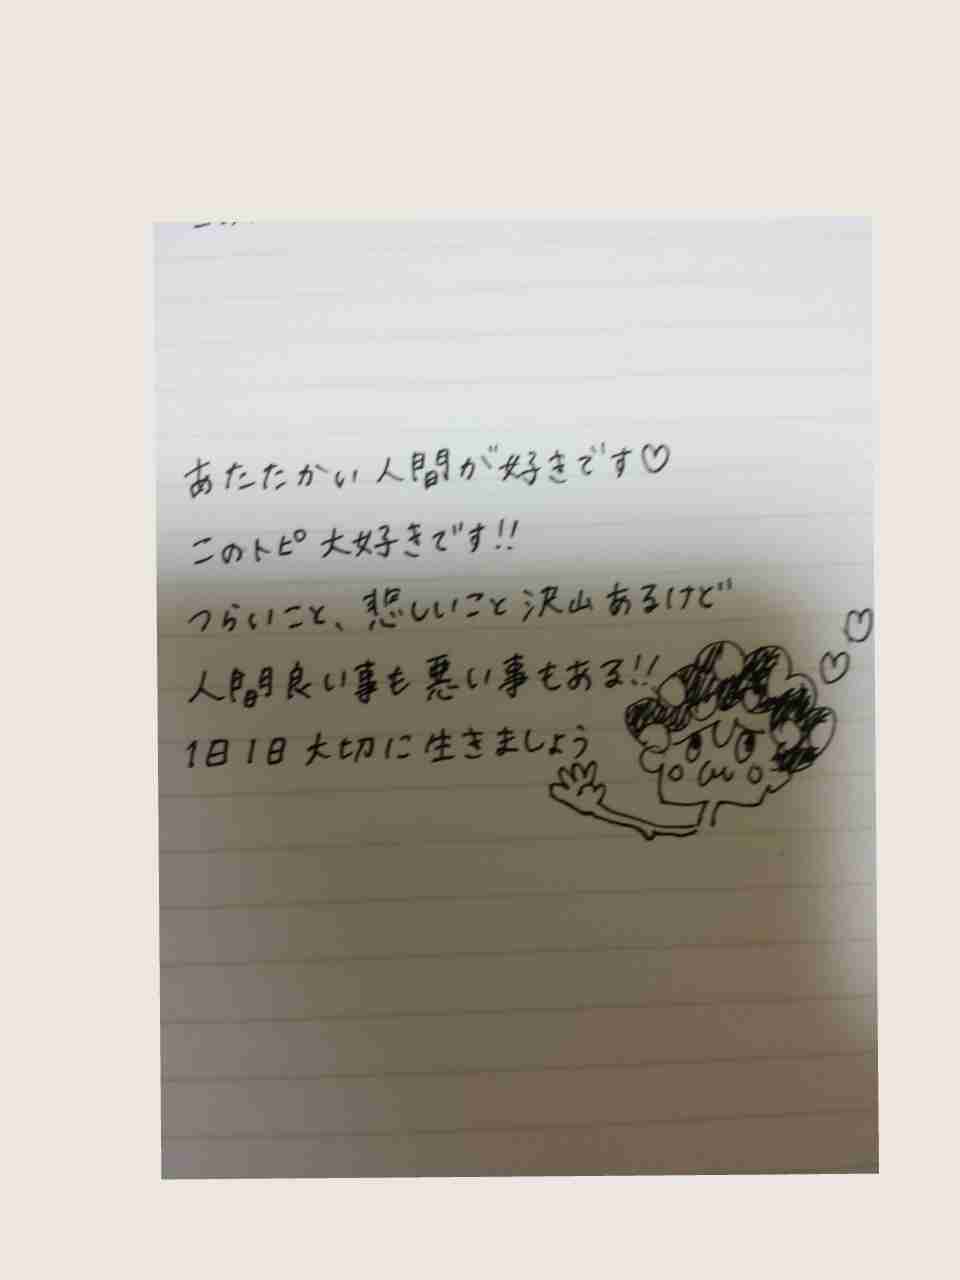 あたたかい人間が好きです♡
このトピ大好きです!!
つらいこと、悲しいこと沢山あるけど
人間良い事も悪い事もある!!
1日1日大切に生きましょう